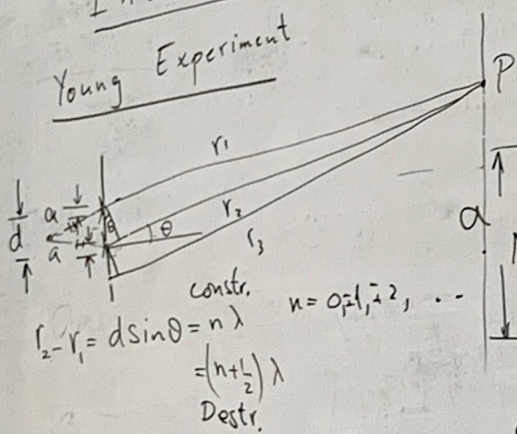 Young Experiment
P
r₁
a
r₂
θ
d
a
r₃
a
constr.
n = 0, ±1, ±2, ...
r₂ - r₁ = d sinθ = n λ
= (n + 1/2) λ
Destr.